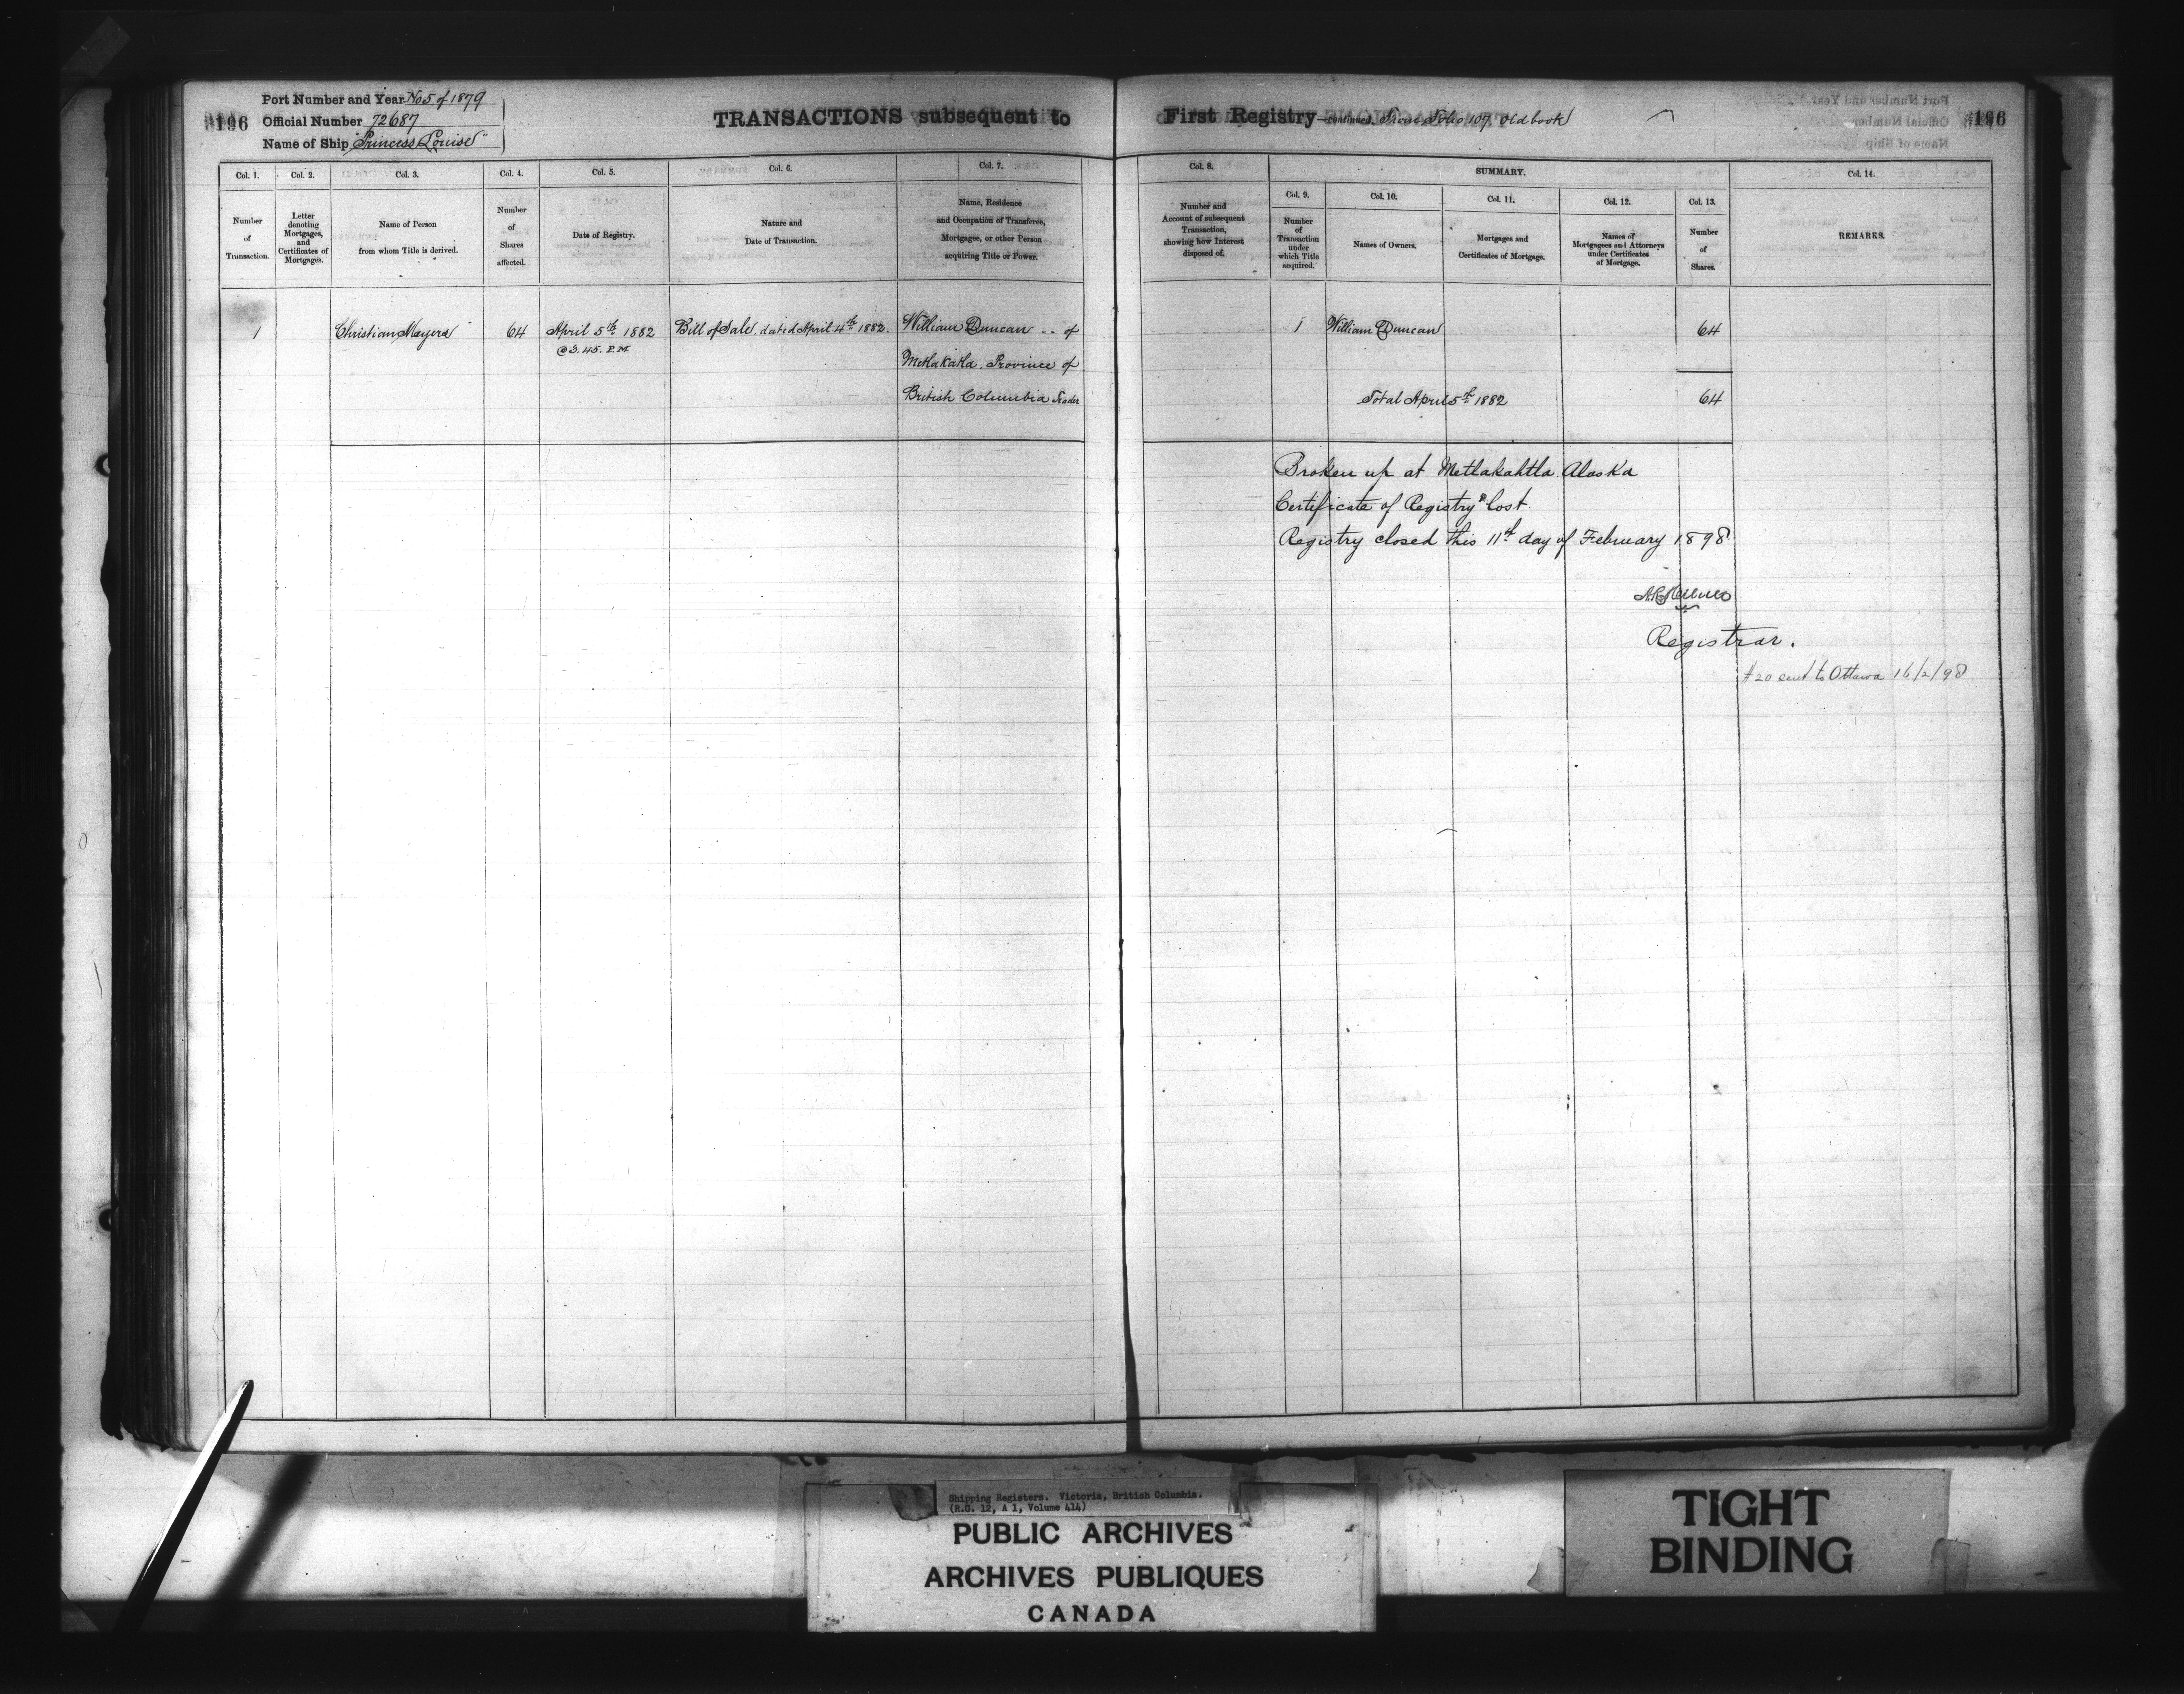 196
Port Number and Year No 5 of 1879
Official Number 72687
Name of Ship "Princess Louise"
TRANSACTIONS subsequent to
First Registry—continued. From Folio 107 Old book
196
Col. 1.
Number
of
Transaction.
Col. 2.
Letter
denoting
Mortgages,
and
Certificates of
Mortgages.
Col. 3.
Name of Person
from whom Title is derived.
Col. 4.
Number
of
Shares
affected.
Col. 5.
Date of Registry.
Col. 6.
Nature and
Date of Transaction.
Col. 7.
Name, Residence
and Occupation of Transferee,
Mortgagee, or other Person
acquiring Title or Power.
Col. 8.
Number and
Account of subsequent
Transaction,
showing how Interest
disposed of.
SUMMARY.
Col. 9.
Number
of
Transaction
under
which Title
acquired.
Col. 10.
Names of Owners.
Col. 11.
Mortgages and
Certificates of Mortgage.
Col. 12.
Names of
Mortgagees and Attorneys
under Certificates
of Mortgage.
Col. 13.
Number
of
Shares.
Col. 14.
REMARKS.
1
Christian Mayers
64
April 5th 1882
@ 3.45. P.M
Bill of Sale. dated April 4th 1882.
William Duncan -- of
Metlakatla. Province of
British Columbia Trader
1
William Duncan
64
Total April 5th 1882
64
Broken up at Metlakahtla Alaska
Certificate of Registry lost.
Registry closed this 11th day of February 1898
Registrar.
#20 sent to Ottawa 16/2/98
Shipping Registers. Victoria, British Columbia.
(R.G. 12, A 1, Volume 414)
PUBLIC ARCHIVES
ARCHIVES PUBLIQUES
CANADA
TIGHT
BINDING